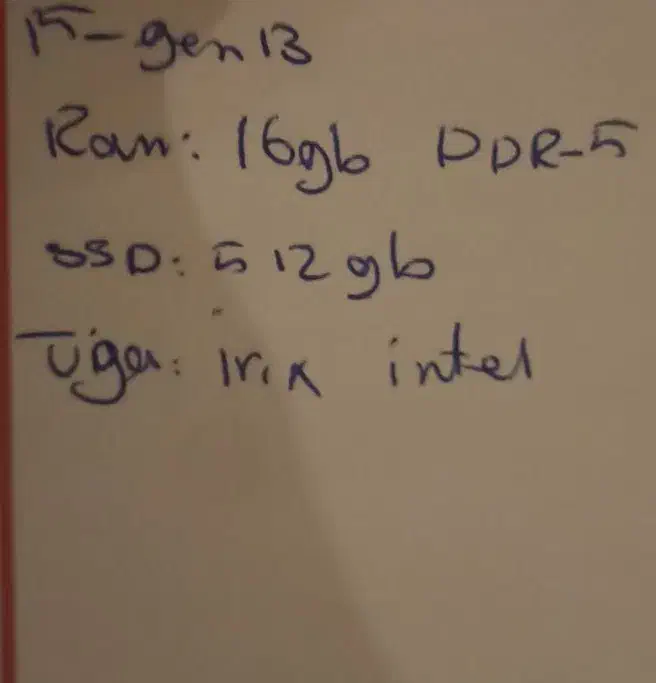 i5-gen 13
Ram: 16gb DDR-5
SSD: 512 gb
Vga: irix intel